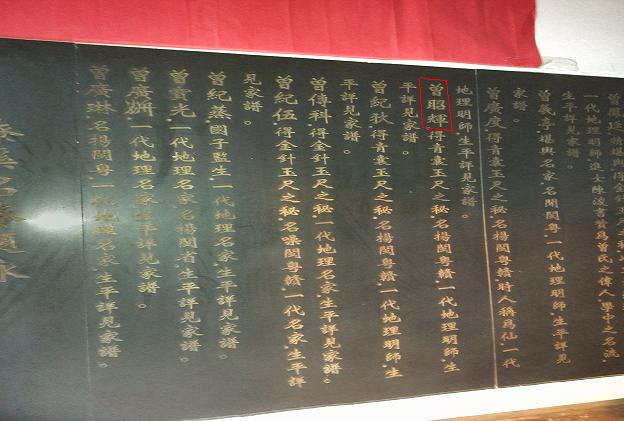 一代地理明師進士陳浚書贊爲曾氏之偉人學中之名流
生平詳見家譜。
曾義崇堪輿名家名聞閩粵一代地理明師生平詳見
家譜。
曾廣度得青囊玉尺之秘名揚閩粵贛時人稱爲仙一代
地理明師生平詳見家譜。
曾昭輝得青囊玉尺之秘名揚閩粵贛一代地理明師生
平詳見家譜。
曾紀狄得青囊玉尺之秘名揚閩粵贛一代地理明師生
平詳見家譜。
曾傳科得金針玉尺之秘一代地理名家生平詳見家譜。
曾紀伍得金針玉尺之秘名噪閩粵贛一代名家生平詳
見家譜。
曾紀蒸國子監生一代地理名家生平詳見家譜。
曾憲光一代地理名家名揚閩省生平詳見家譜。
曾廣炯一代地理名家生平詳見家譜。
曾廣琳名揚閩粵一代地理名家生平詳見家譜。